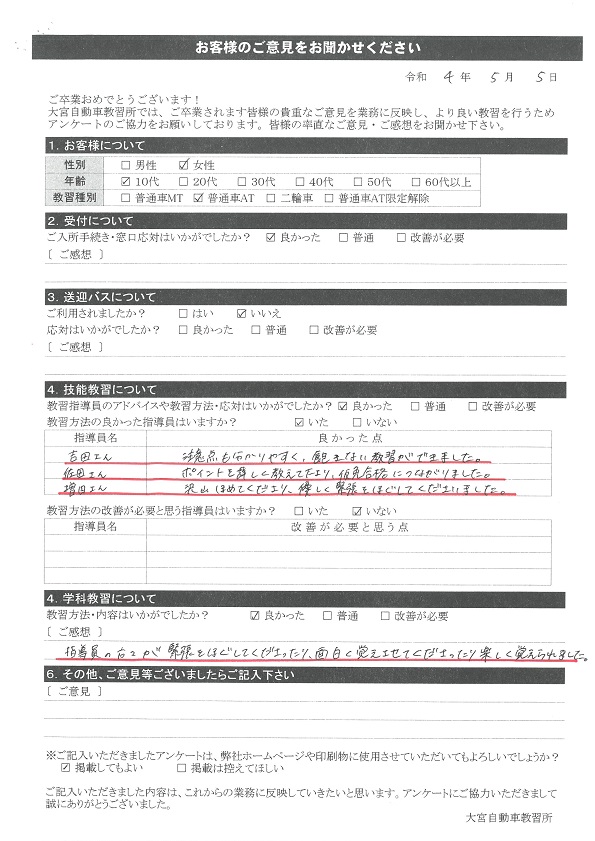 お客様のご意見をお聞かせください
令和 4年 5月 5日
ご卒業おめでとうございます！
大宮自動車教習所では、ご卒業されます皆様の貴重なご意見を業務に反映し、より良い教習を行うため
アンケートのご協力をお願いしております。皆様の率直なご意見・ご感想をお聞かせ下さい。
1. お客様について
性別 □ 男性 ☑ 女性
年齢 ☑ 10代 □ 20代 □ 30代 □ 40代 □ 50代 □ 60代以上
教習種別 □ 普通車MT ☑ 普通車AT □ 二輪車 □ 普通車AT限定解除
2. 受付について
ご入所手続き・窓口応対はいかがでしたか？ ☑ 良かった □ 普通 □ 改善が必要
〔 ご感想 〕
3. 送迎バスについて
ご利用されましたか？ □ はい ☑ いいえ
応対はいかがでしたか？ □ 良かった □ 普通 □ 改善が必要
〔 ご感想 〕
4. 技能教習について
教習指導員のアドバイスや教習方法・応対はいかがでしたか？ ☑ 良かった □ 普通 □ 改善が必要
教習方法の良かった指導員はいますか？ ☑ いた □ いない
指導員名 良かった点
吉田さん も分かりやすく、 教習ができました。
佐田さん ポイントを詳しく教えて下さり、仮免合格につながりました。
増田さん 沢山ほめてくださり、優しく緊張をほぐしてくださいました。
教習方法の改善が必要と思う指導員はいますか？ □ いた ☑ いない
指導員名 改善が必要と思う点
4. 学科教習について
教習方法・内容はいかがでしたか？ ☑ 良かった □ 普通 □ 改善が必要
〔 ご感想 〕
指導員の方々が緊張をほぐしてくださったり、面白く覚えさせてくださったり楽しく覚えられました。
6. その他、ご意見等ございましたらご記入下さい
〔 ご意見 〕
※ご記入いただきましたアンケートは、弊社ホームページや印刷物に使用させていただいてもよろしいでしょうか？
☑ 掲載してもよい □ 掲載は控えてほしい
ご記入いただきました内容は、これからの業務に反映していきたいと思います。アンケートにご協力いただきまして
誠にありがとうございました。
大宮自動車教習所